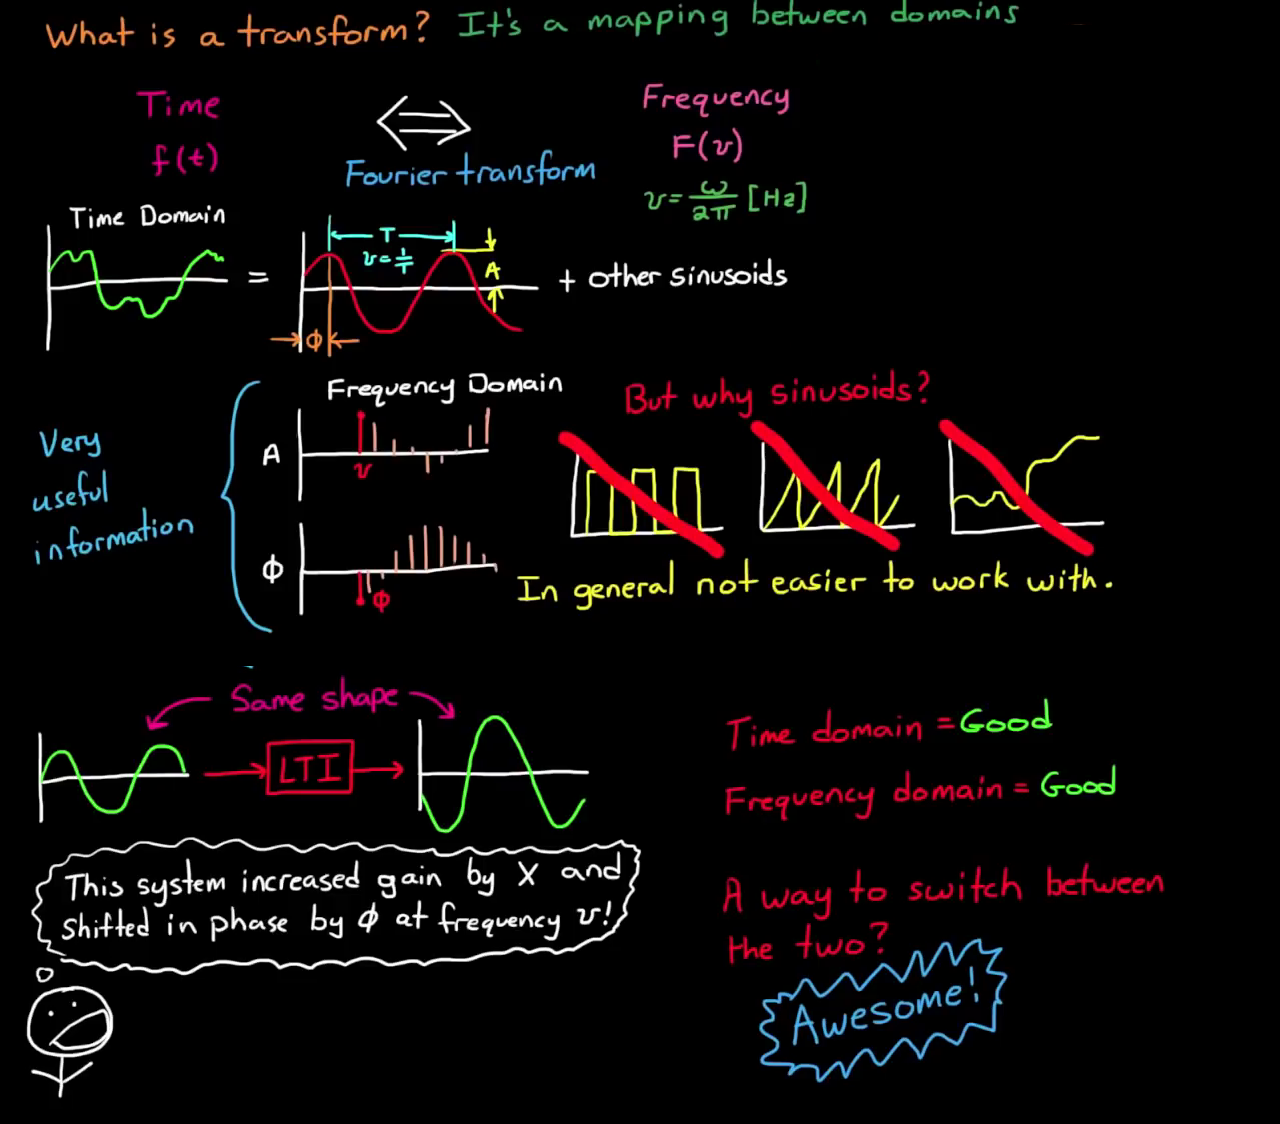 What is a transform? It's a mapping between domains
Time
f(t)
Fourier transform
Frequency
F(v)
v = ω/2π [Hz]
Time Domain
=
T
v = 1/T
A
Φ
+ other sinusoids
Very
useful
information
Frequency Domain
A
v
Φ
Φ
But why sinusoids?
In general not easier to work with.
Same shape
LTI
This system increased gain by X and
shifted in phase by Φ at frequency v!
Time domain = Good
Frequency domain = Good
A way to switch between
the two?
Awesome!